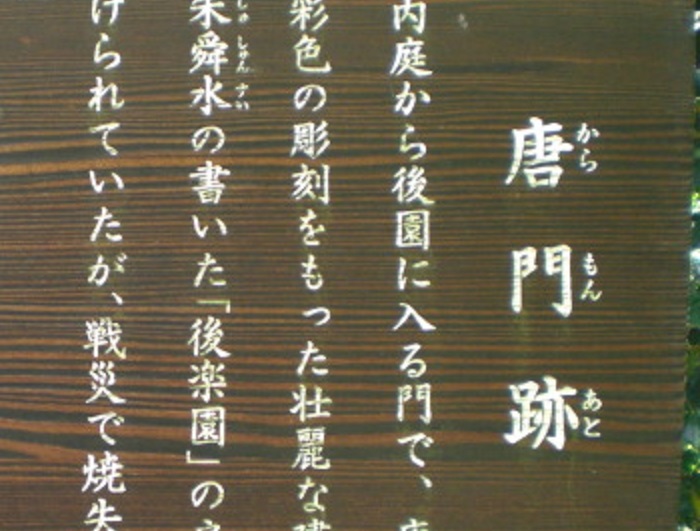 唐門跡
からもんあと
内庭から後園に入る門で、
彩色の彫刻をもった壮麗な
朱舜水の書いた「後楽園」の
しゅしゅんすい
けられていたが、戦災で焼失